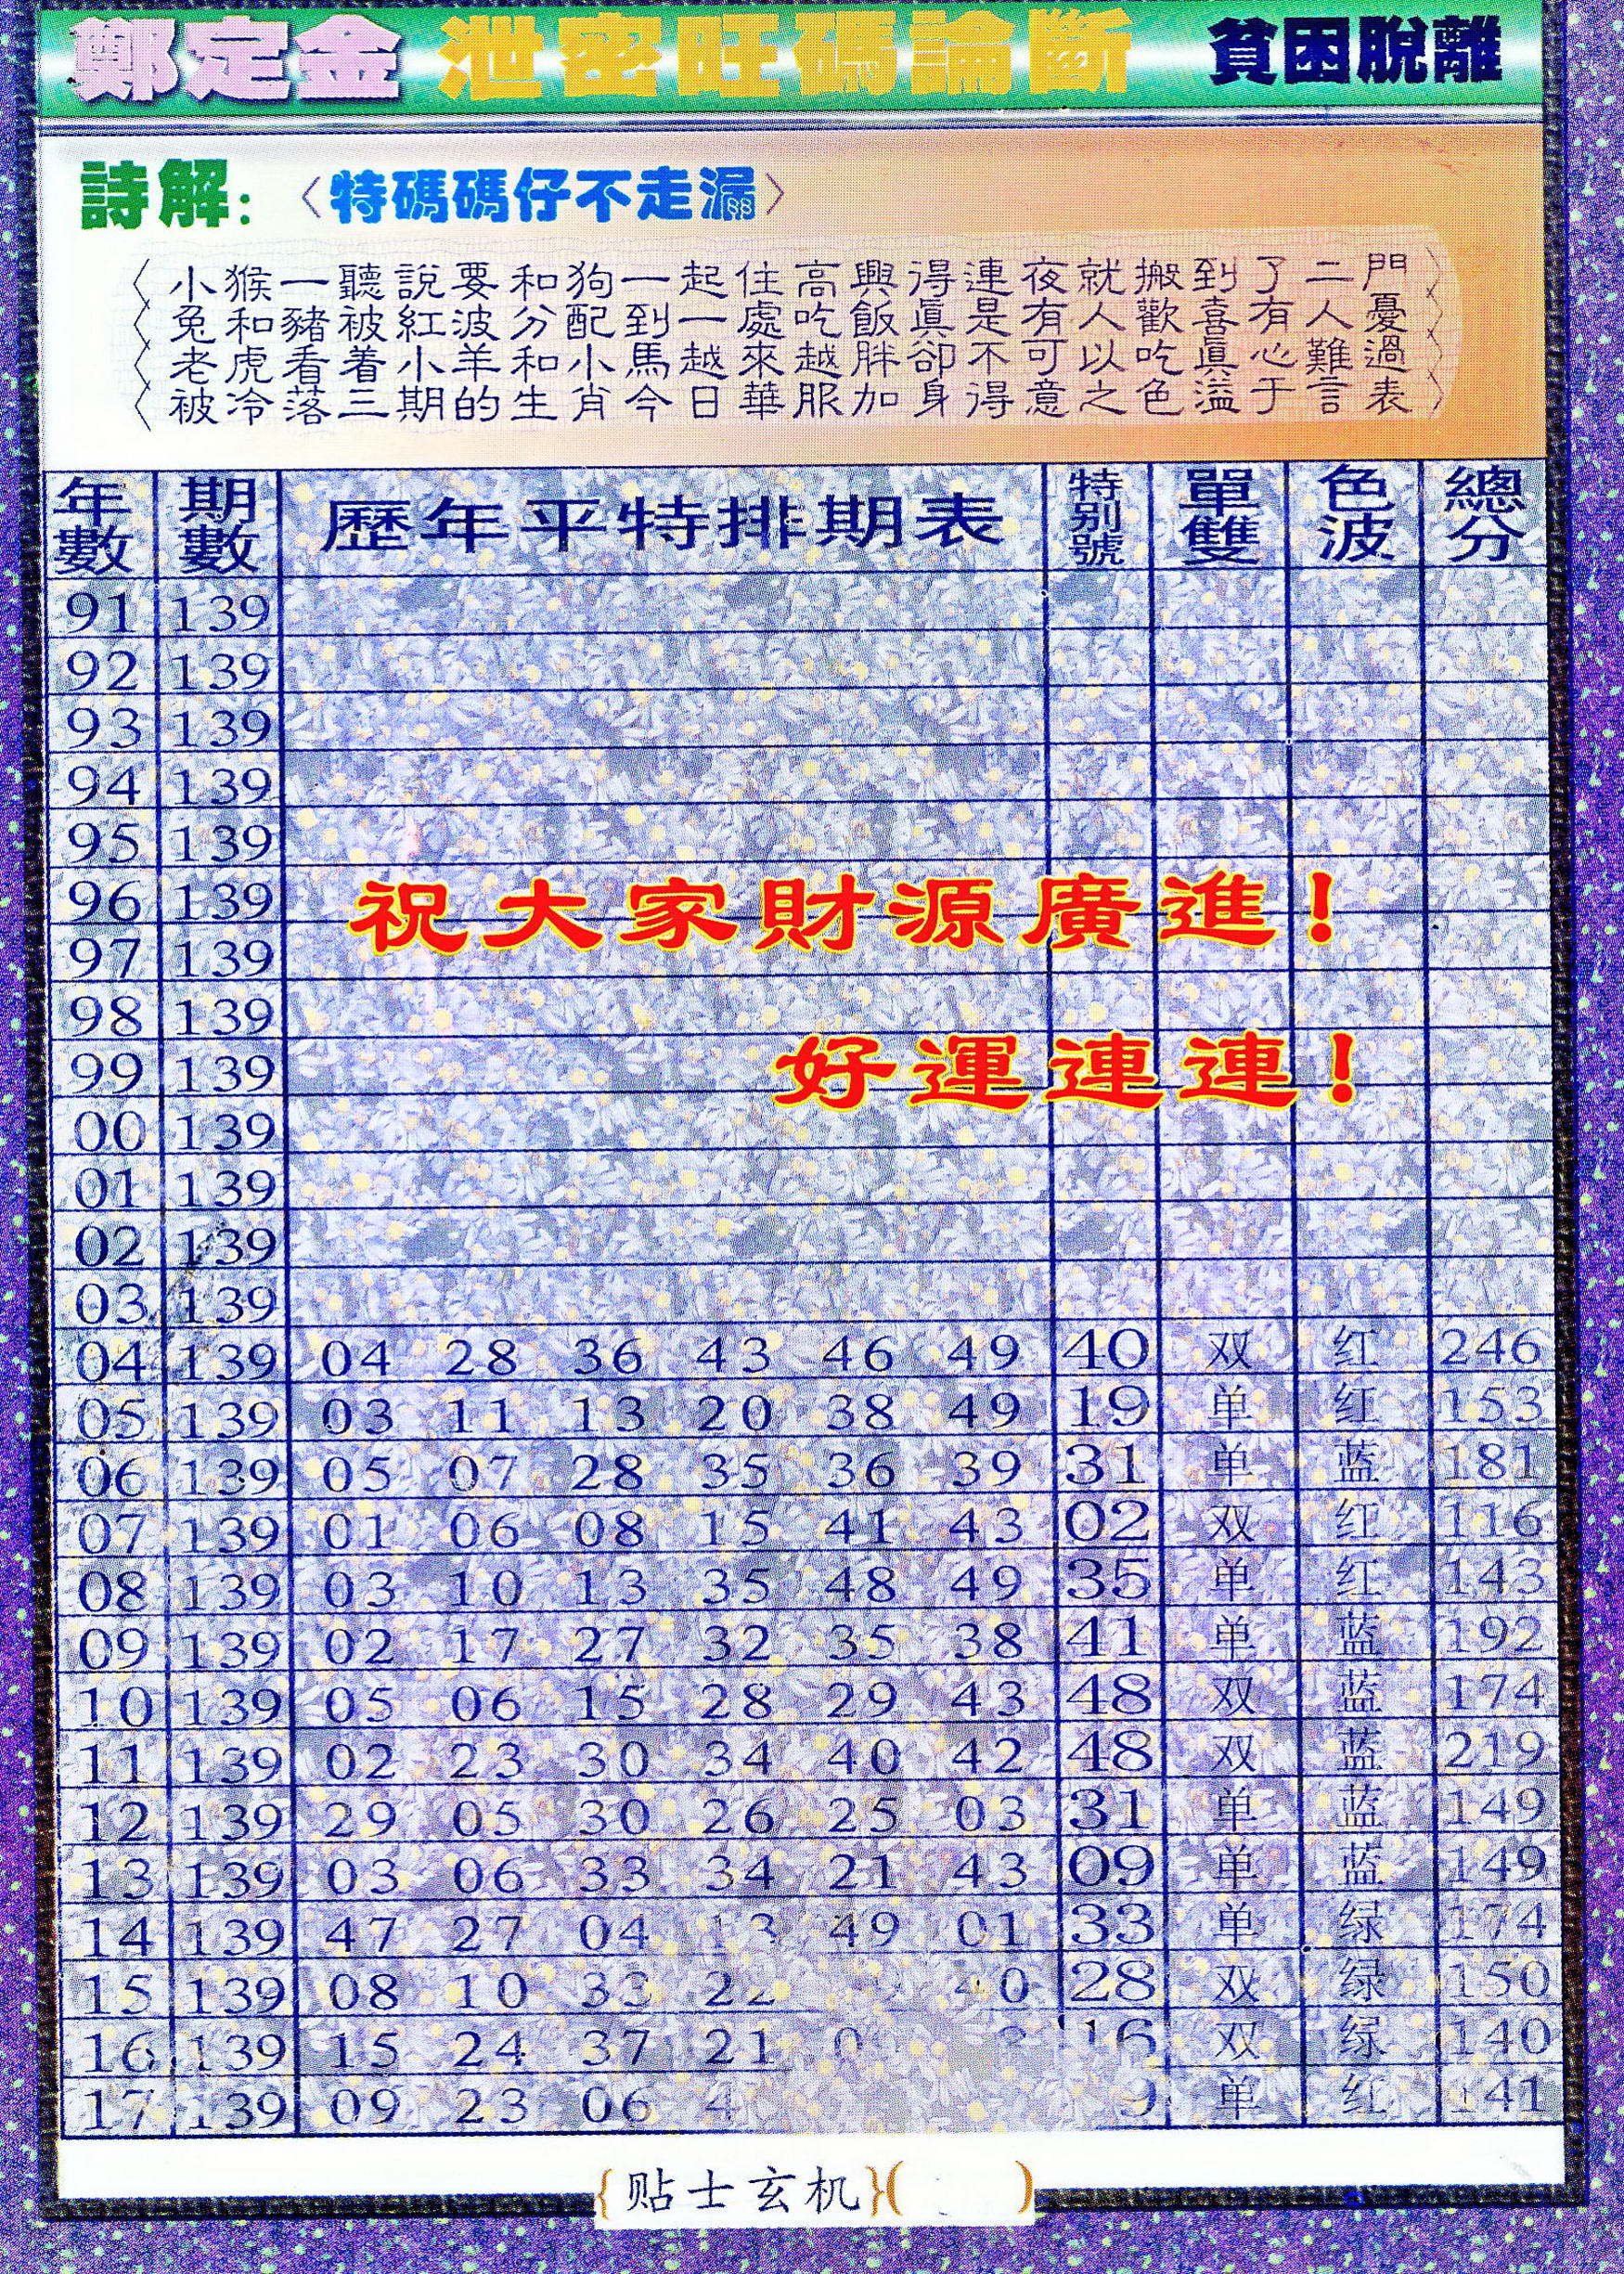 鄭定金 泄密旺碼論斷 貧困脫離
詩解:〈特碼碼仔不走漏〉
小猴一聽說要和狗一起住高興得連夜就搬到了二門
兔和豬被紅波分配到一處吃飯眞是有人歡喜有人憂
老虎看着小羊和小馬越來越胖卻不可以吃眞心難過
被冷落三期的生肖今日華服加身得意之色溢于言表
年數 期數 歷年平特排期表 特别號 單雙 色波 總分
91 139
92 139
93 139
94 139
95 139
96 139
祝大家財源廣進!
97 139
98 139
99 139
好運連連!
00 139
01 139
02 139
03 139
04 139 04 28 36 43 46 49 40 双 红 246
05 139 03 11 13 20 38 49 19 单 红 153
06 139 05 07 28 35 36 39 31 单 蓝 181
07 139 01 06 08 15 41 43 02 双 红 116
08 139 03 10 13 35 48 49 35 单 红 143
09 139 02 17 27 32 35 38 41 单 蓝 192
10 139 05 06 15 28 29 43 48 双 蓝 174
11 139 02 23 30 34 40 42 48 双 蓝 219
12 139 29 05 30 26 25 03 31 单 蓝 149
13 139 03 06 33 34 21 43 09 单 蓝 149
14 139 47 27 04 13 49 01 33 单 绿 174
15 139 08 10 33 22 40 28 双 绿 150
16 139 15 24 37 21 16 双 绿 140
17 139 09 23 06 单 红 141
{贴士玄机}( )